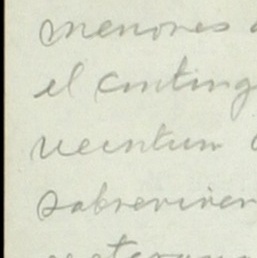 menores
el conting
veintiun
sobreviven